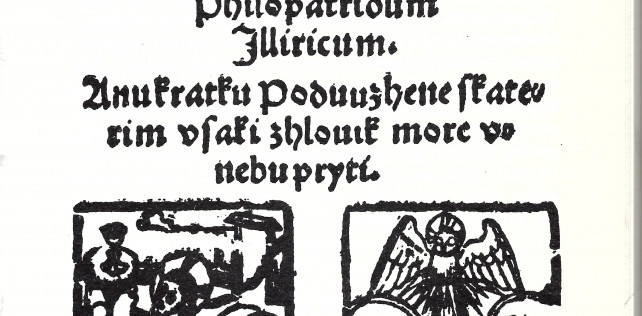 Philopatridum
Illiricum.
Anu kratku Poduuzhene skate„
rim vsaki zhlouik more vo
nebu pryti.